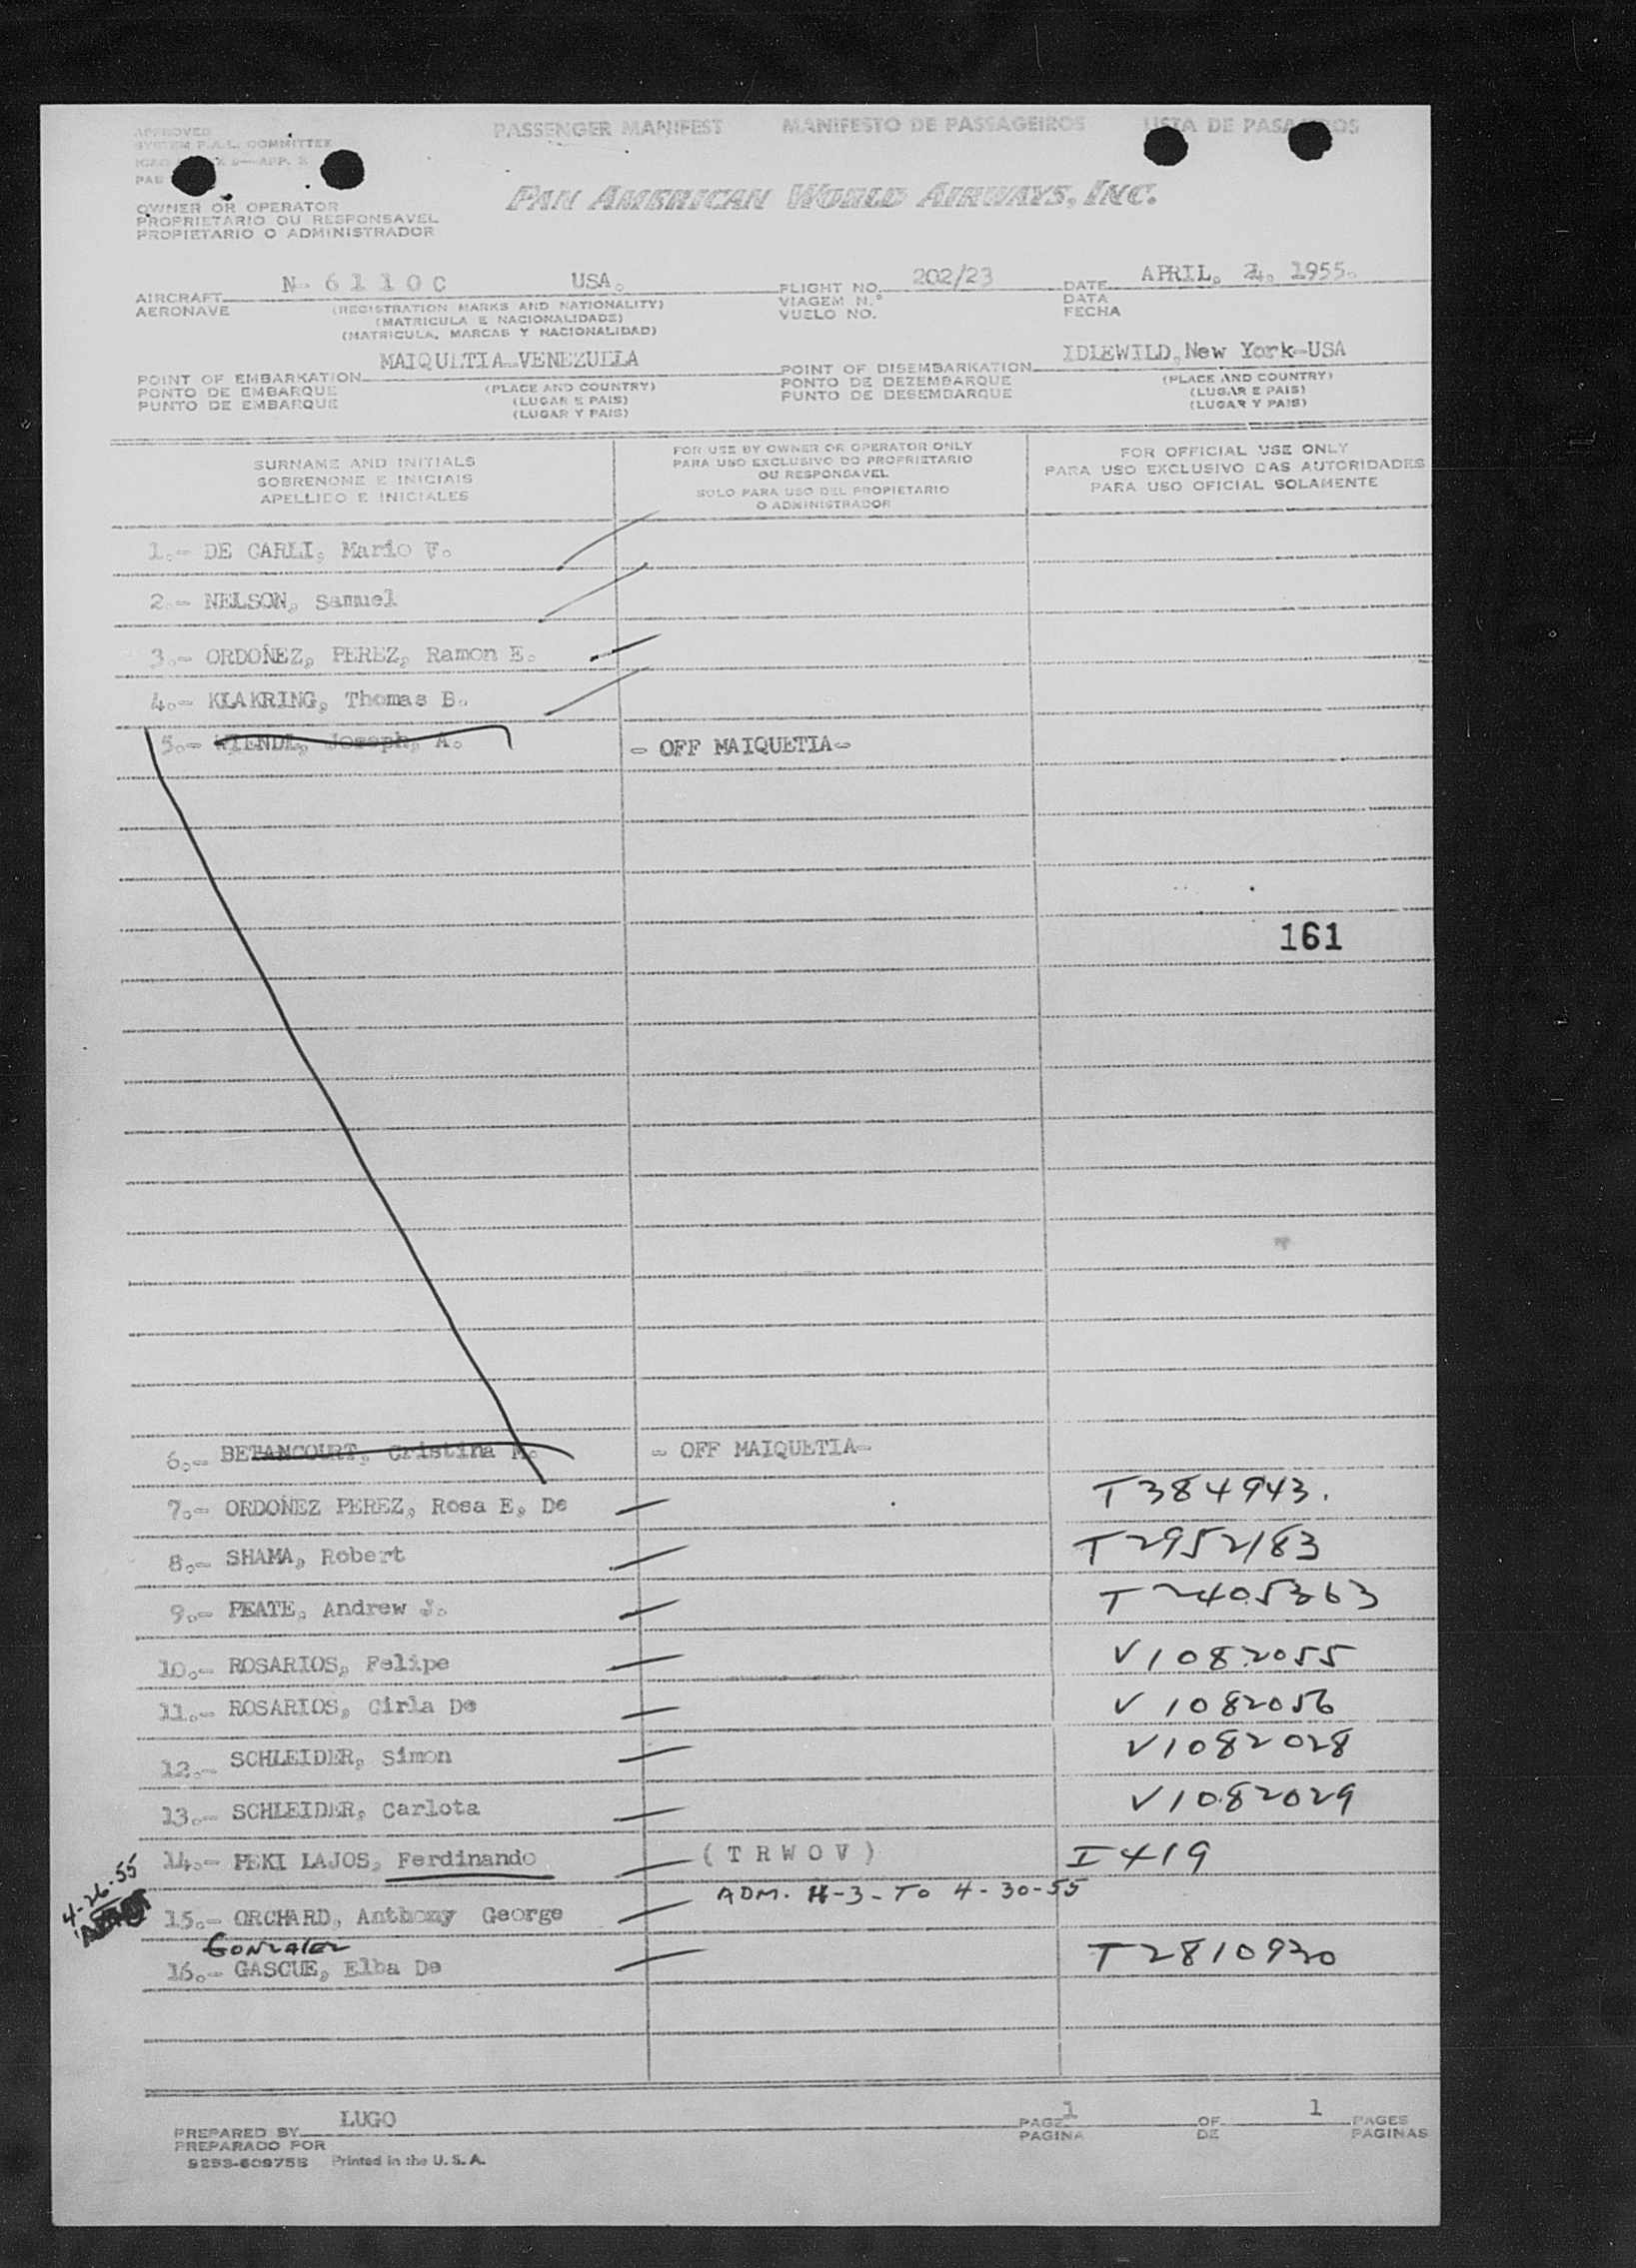 PASSENGER MANIFEST MANIFESTO DE PASSAGEIROS LISTA DE PASAJEROS
APPROVED
SYSTEM F.A.L. COMMITTEE
PAN AMERICAN WORLD AIRWAYS, INC.
OWNER OR OPERATOR
PROPRIETARIO OU RESPONSAVEL
PROPIETARIO O ADMINISTRADOR
AIRCRAFT N- 6 1 1 0 C USA.
AERONAVE
(REGISTRATION MARKS AND NATIONALITY)
(MATRICULA E NACIONALIDADE)
(MATRICULA, MARCAS Y NACIONALIDAD)
FLIGHT NO. 202/23
VIAGEM N.º
VUELO NO.
DATE APRIL, 1955.
DATA
FECHA
POINT OF EMBARKATION MAIQUETIA-VENEZUELA
PONTO DE EMBARQUE
PUNTO DE EMBARQUE
(PLACE AND COUNTRY)
(LUGAR E PAIS)
(LUGAR Y PAIS)
POINT OF DISEMBARKATION IDLEWILD, New York-USA
PONTO DE DEZEMBARQUE
PUNTO DE DESEMBARQUE
(PLACE AND COUNTRY)
(LUGAR E PAIS)
(LUGAR Y PAIS)
SURNAME AND INITIALS
SOBRENOME E INICIAIS
APELLIDO E INICIALES
FOR USE BY OWNER OR OPERATOR ONLY
PARA USO EXCLUSIVO DO PROPRIETARIO
OU RESPONSAVEL
SOLO PARA USO DEL PROPIETARIO
O ADMINISTRADOR
FOR OFFICIAL USE ONLY
PARA USO EXCLUSIVO DAS AUTORIDADES
PARA USO OFICIAL SOLAMENTE
1.- DE CARLI, Mario V.
2.- NELSON, Samuel
3.- ORDOÑEZ, PEREZ, Ramon E.
4.- KLAKRING, Thomas B.
5.- WIENDL, Joseph, A. - OFF MAIQUETIA-
161
6.- BETANCOURT, Cristina M. - OFF MAIQUETIA-
7.- ORDOÑEZ PEREZ, Rosa E, De T384943.
8.- SHAMA, Robert T2952183
9.- PEATE, Andrew J. T2405363
10.- ROSARIOS, Felipe V1082055
11.- ROSARIOS, Cirla De V1082056
12.- SCHLEIDER, Simon V1082028
13.- SCHLEIDER, Carlota V1082029
14.- PEKI LAJOS, Ferdinando ( T R W O V ) I 419
4-26-55
ADM. H-3-TO 4-30-55
15.- ORCHARD, Anthony George
Gonzalez
16.- GASCUE, Elba De T2810930
PREPARED BY LUGO
PREPARADO POR
PAGE 1 OF 1 PAGES
PAGINA DE PAGINAS
9253-609758 Printed in the U. S. A.